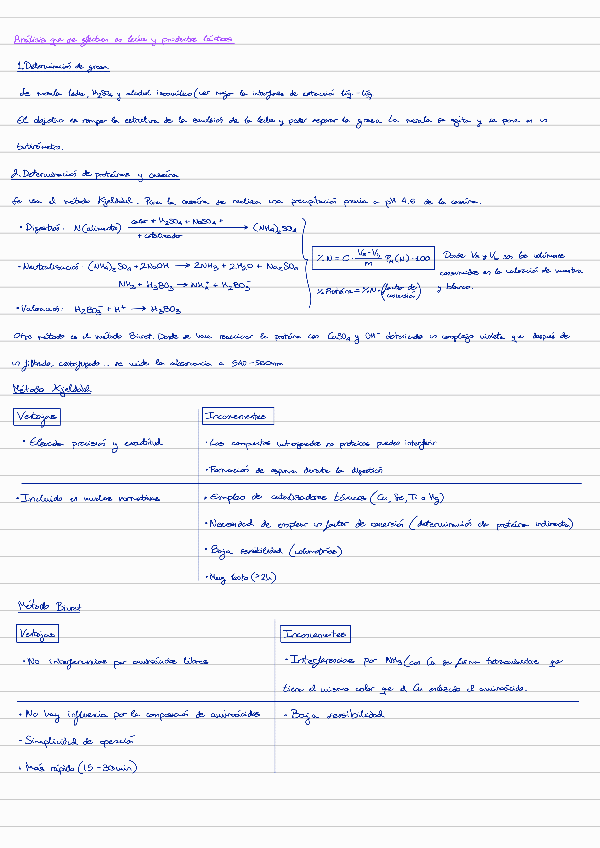 Análisis que se efectúan en leche y productos lácteos
1. Determinación de grasa
Se mezcla leche, H₂SO₄ y alcohol isoamílico (ver mejor la interfase de extracción líq-líq
El objetivo es romper la estructura de la emulsión de la leche y poder separar la grasa. La mezcla se agita y se pone en un
butirómetro.
2. Determinación de proteínas y caseína
Se usa el método Kjeldahl. Para la caseína se realiza una precipitación previa a pH 4.6 de la caseína.
• Digestión: N(alimento) calor + H₂SO₄ + Na₂SO₄ + + catalizador → (NH₄)₂SO₄
- Neutralización (NH₄)₂SO₄ + 2NaOH → 2NH₃ + 2H₂O + Na₂SO₄
NH₃ + H₃BO₃ → NH₄⁺ + H₂BO₃⁻
• Valoración: H₂BO₃⁻ + H⁺ → H₃BO₃
% N = C · (Vₘ - Vᵦ)/m · Pₘ(N) · 100
% Proteína = % N · (factor de conversión)
Donde Vm y Vb son los volúmenes
consumidos en la valoración de muestra
y blanco.
Otro método es el método Biuret. Donde se hace reaccionar la proteína con CuSO₄ y OH⁻ obteniendo un complejo violeta que después de
un filtrado, centrifugado... se mide la absorbancia a 540-560nm
Método Kjeldahl
Ventajas
Inconvenientes
• Elevada precisión y exactitud
• Los compuestos nitrogenados no proteicos pueden interferir
• Formación de espuma durante la digestión
• Incluido en muchas normativas
• Empleo de catalizadores tóxicos (Cu, Se, Ti o Hg)
• Necesidad de emplear un factor de conversión (determinación de proteína indirecta)
• Baja sensibilidad (volumetrías)
• Muy lento (>2h)
Método Biuret
Ventajas
Inconvenientes
• No interferencias por aminoácidos libres
- Interferencias por NH₃ (con Cu se forma que
tiene el mismo color que el Cu el aminoácido.
• No hay influencia por la composición de aminoácidos
- Baja sensibilidad
- Simplicidad de operación
• Más rápido (15-30min)